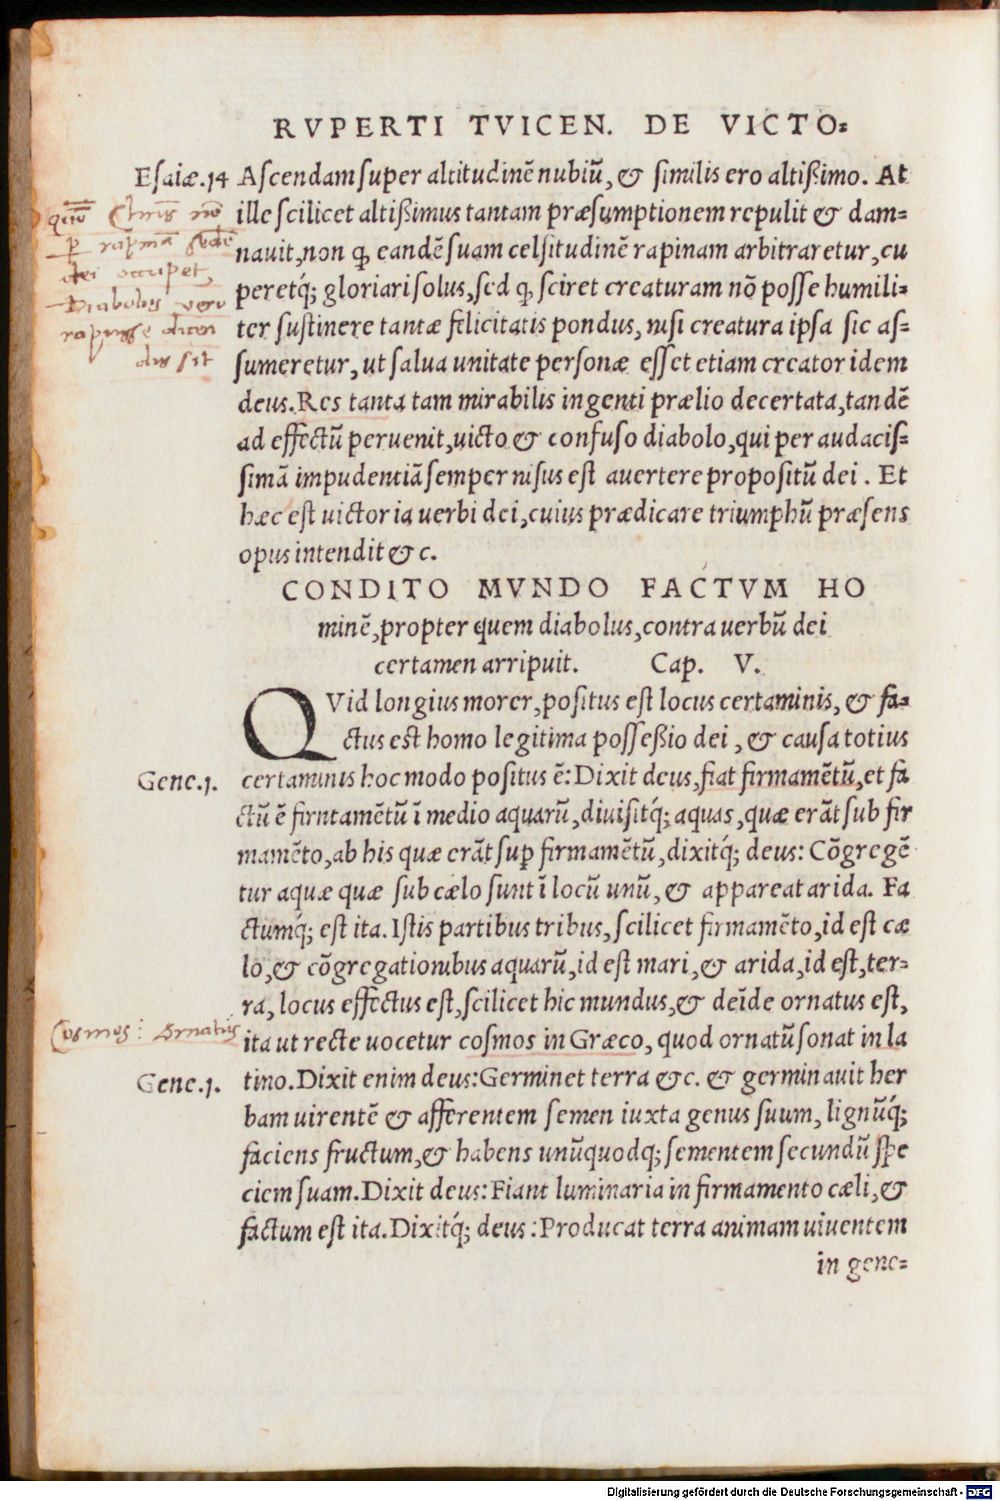 RVPERTI TVICEN. DE VICTO=
Esaiæ.14 Ascendam super altitudinē nubiū, & similis ero altißimo. At
ille scilicet altißimus tantam præsumptionem repulit & dam=
nauit, non ꝙ eandē suam celsitudinē rapinam arbitraretur, cu
peretq́; gloriari solus, sed ꝙ sciret creaturam nō posse humili=
ter sustinere tantæ felicitatis pondus, nisi creatura ipsa sic as=
sumeretur, ut salua unitate personæ esset etiam creator idem
deus. Res tanta tam mirabilis ingenti prælio decertata, tandē
ad effectū peruenit, uicto & confuso diabolo, qui per audacis=
simā impudentiā semper nisus est auertere propositū dei. Et
hæc est uictoria uerbi dei, cuius prædicare triumphū præsens
opus intendit &c.
quō Christus nō
dei occupet,
Diabolus vero
rapuisse dicen
dus sit
CONDITO MVNDO FACTVM HO
minē, propter quem diabolus, contra uerbū dei
certamen arripuit. Cap. V.
QVid longius morer, positus est locus certaminis, & fa=
ctus est homo legitima possessßio dei, & causa totius
Gene.1. certaminis hoc modo positus ē: Dixit deus, fiat firmamētū, et fa
ctū ē firntamētū ī medio aquarū, diuisitq́; aquas, quæ erāt sub fir
mamēto, ab his quæ erāt sup̱ firmamētū, dixitq́; deus: Cōgregē
tur aquæ quæ sub cælo sunt ī locū unū, & appareat arida. Fa
ctumq́; est ita. Istis partibus tribus, scilicet firmamēto, id est cæ
lo, & cōgregationibus aquarū, id est mari, & arida, id est, ter=
ra, locus effectus est, scilicet hic mundus, & deīde ornatus est,
Cosmos: Ornatus
ita ut recte uocetur cosmos in Græco, quod ornatū sonat in la
Gene.1. tino. Dixit enim deus: Germinet terra &c. & germinauit her
bam uirentē & afferentem semen iuxta genus suum, lignūq́;
faciens fructum, & habens unūquodq; sementem secundū spe
ciem suam. Dixit deus: Fiant luminaria in firmamento cæli, &
factum est ita. Dixitq́; deus: Producat terra animam uiuentem
in gene=
Digitalisierung gefördert durch die Deutsche Forschungsgemeinschaft - DFG